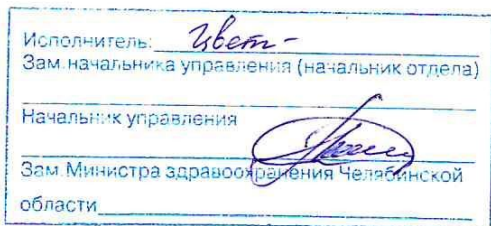 Исполнитель: Цвет-
Зам. начальника управления (начальник отдела)
Начальник управления
Зам. Министра здравоохранения Челябинской
области